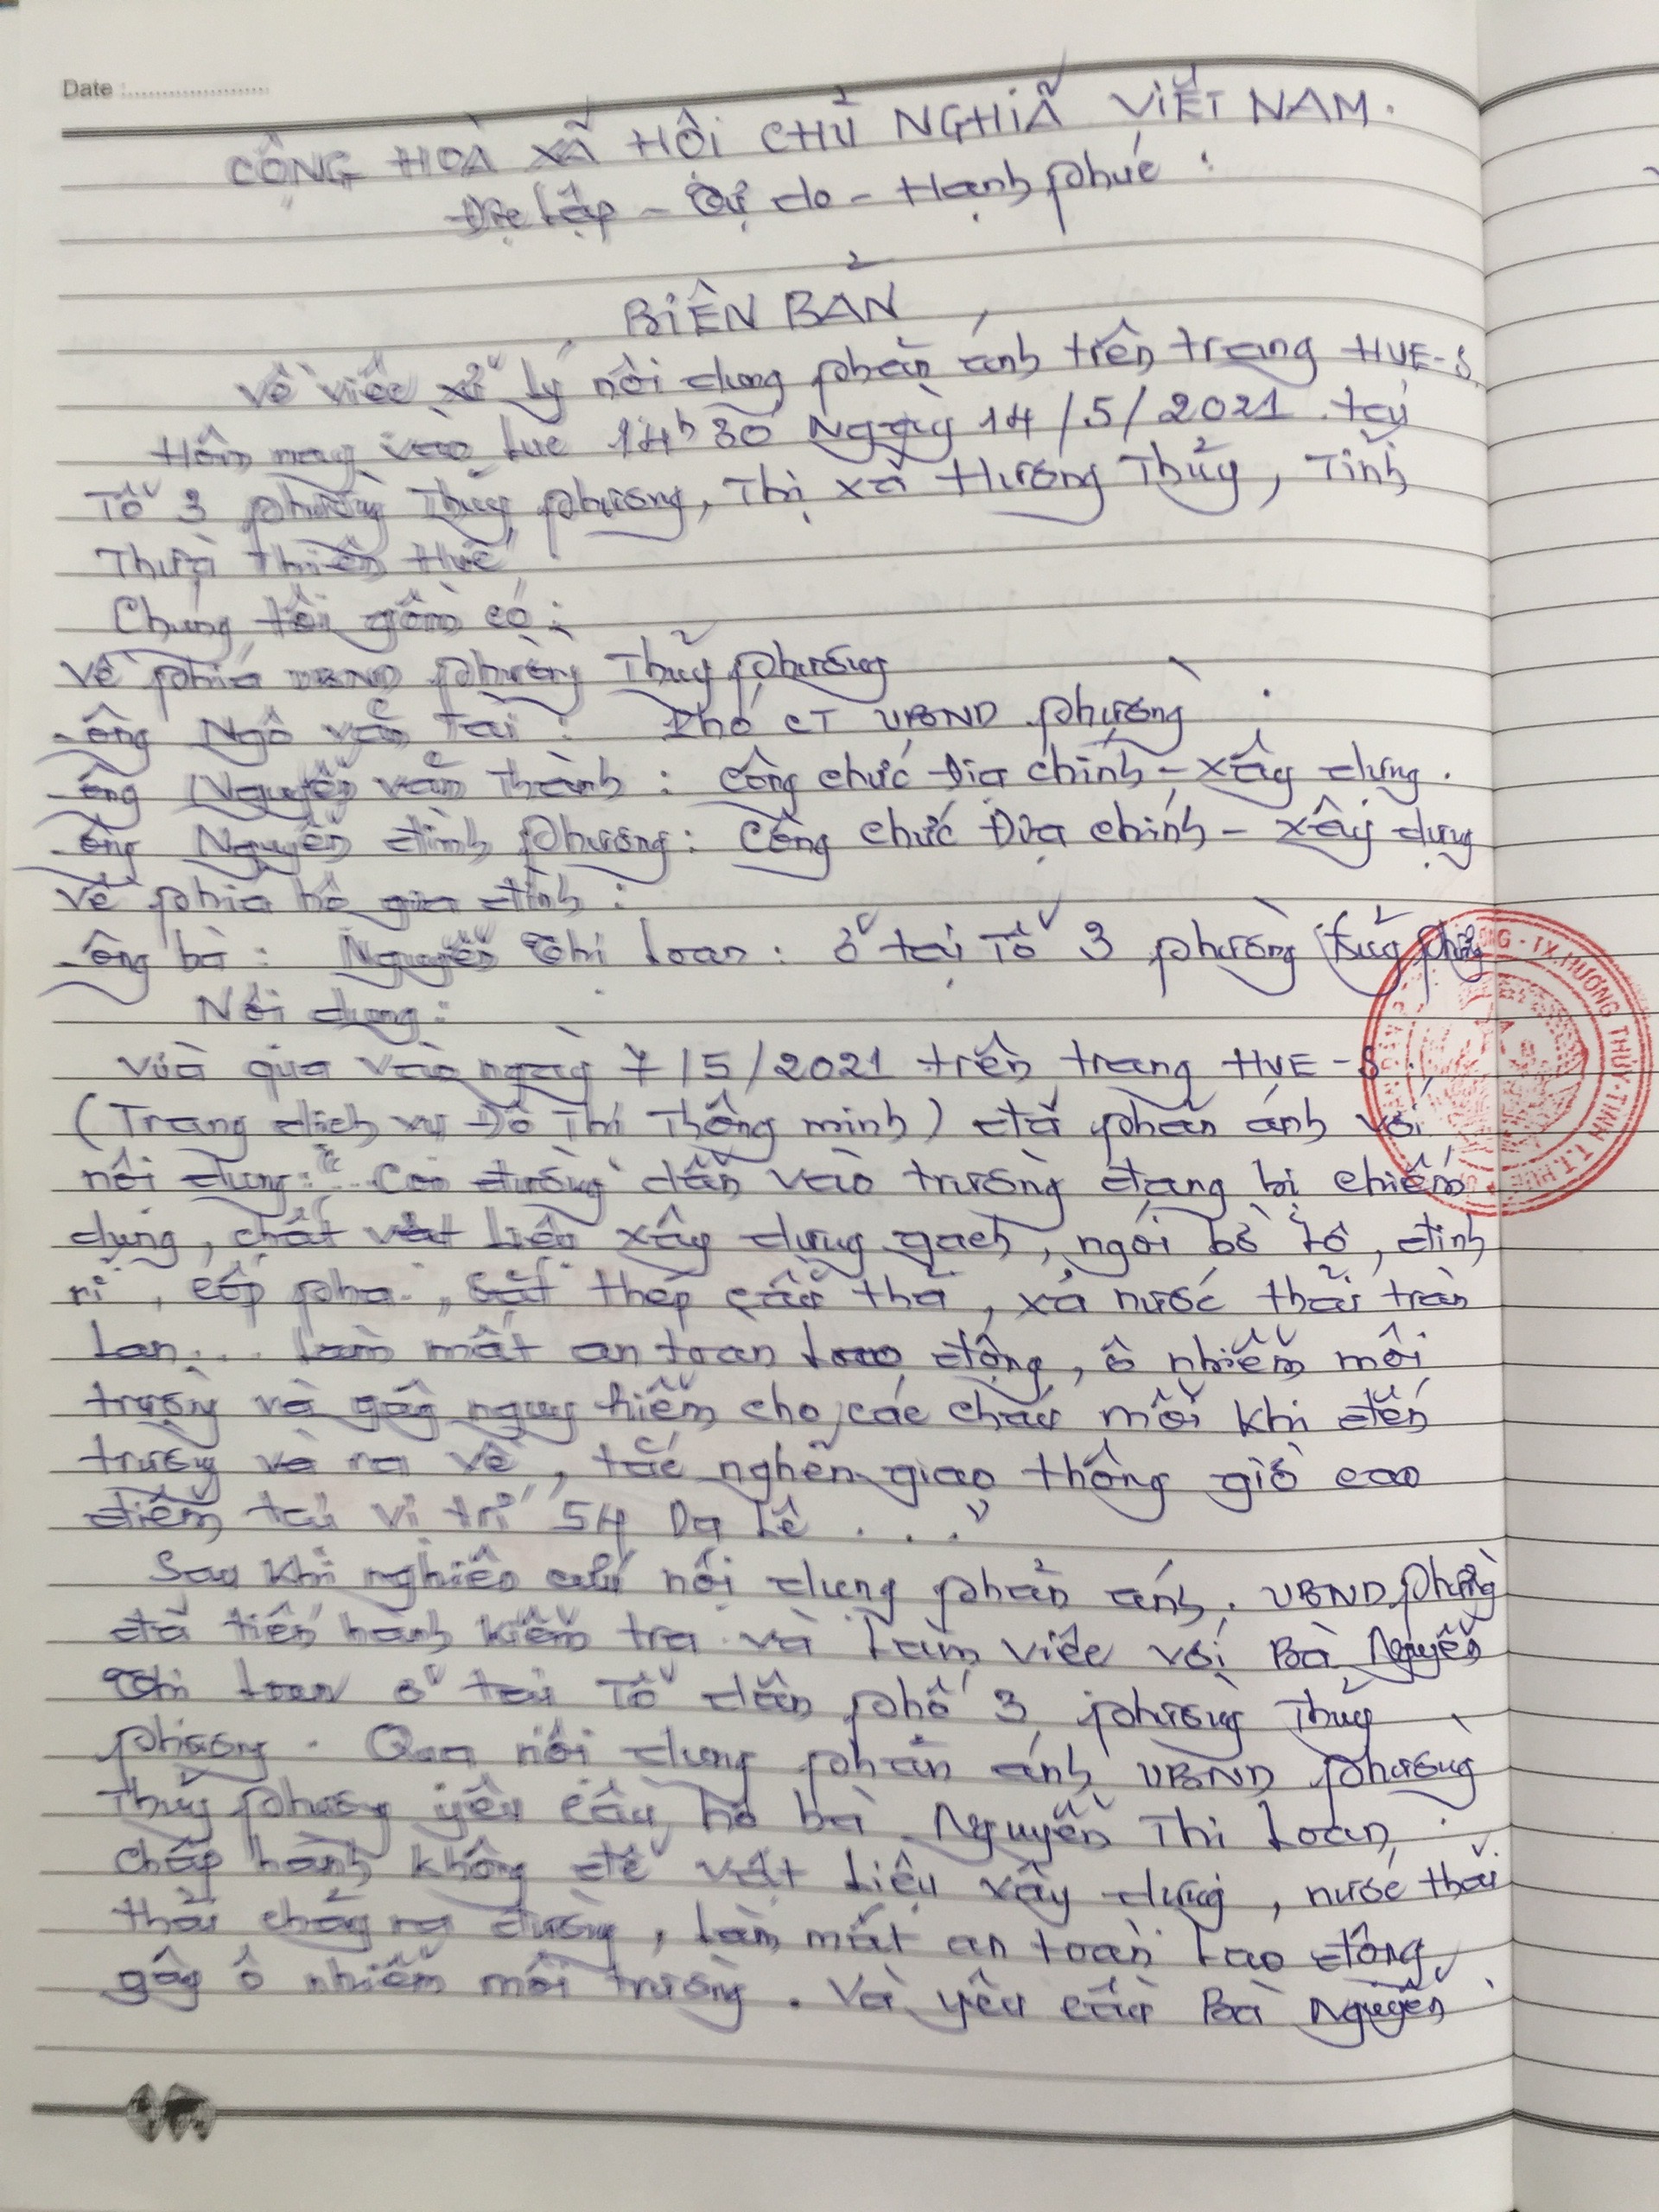 Date :
CỘNG HOÀ XÃ HỘI CHỦ NGHĨA VIỆT NAM.
Độc lập - Tự do - Hạnh phúc
BIÊN BẢN
Về việc xử lý nội dung phản ánh trên trang HUE-S.
Hôm nay vào lúc 14h30 Ngày 14/5/2021 tại
Tổ 3 phường Thủy phương, Thị xã Hương Thủy, Tỉnh
Thừa Thiên Huế
Chúng tôi gồm có:
Về phía UBND phường Thủy phương
- ông Ngô văn Tài : Phó CT UBND phường
- ông Nguyễn văn Thành : Công chức Địa chính - xây dựng.
- ông Nguyễn đình phương : Công chức Địa chính - xây dựng
Về phía hộ gia đình :
- ông bà : Nguyễn Thị Loan : ở tại Tổ 3 phường Thủy phương
Nội dung :
Vừa qua vào ngày 7/5/2021 trên trang HUE-S
(Trang dịch vụ Đô Thị Thông minh) đã phản ánh với
nội dung: "... Con đường dẫn vào trường đang bị chiếm
dụng, chất vật liệu xây dựng gạch, ngói bờ lô, đinh
rỉ, cốp pha, sắt thép cẩu thả, xả nước thải tràn
lan... làm mất an toàn lao động, ô nhiễm môi
trường và gây nguy hiểm cho các cháu mỗi khi đến
trường và ra về, tắc nghẽn giao thông giờ cao
điểm tại vị trí 54 Dạ Lê ..."
Sau khi nghiên cứu nội dung phản ánh. UBND phường
đã tiến hành kiểm tra và làm việc với Bà Nguyễn
Thị Loan ở tại Tổ dân phố 3, phường Thủy
phương. Qua nội dung phản ánh UBND phường
Thủy phương yêu cầu hộ bà Nguyễn Thị Loan,
chấp hành không để vật liệu xây dựng, nước thải
thải chảy ra đường, làm mất an toàn lao động,
gây ô nhiễm môi trường. Và yêu cầu Bà Nguyễn
TX.HƯƠNG THỦY-TỈNH T.T.HUẾ